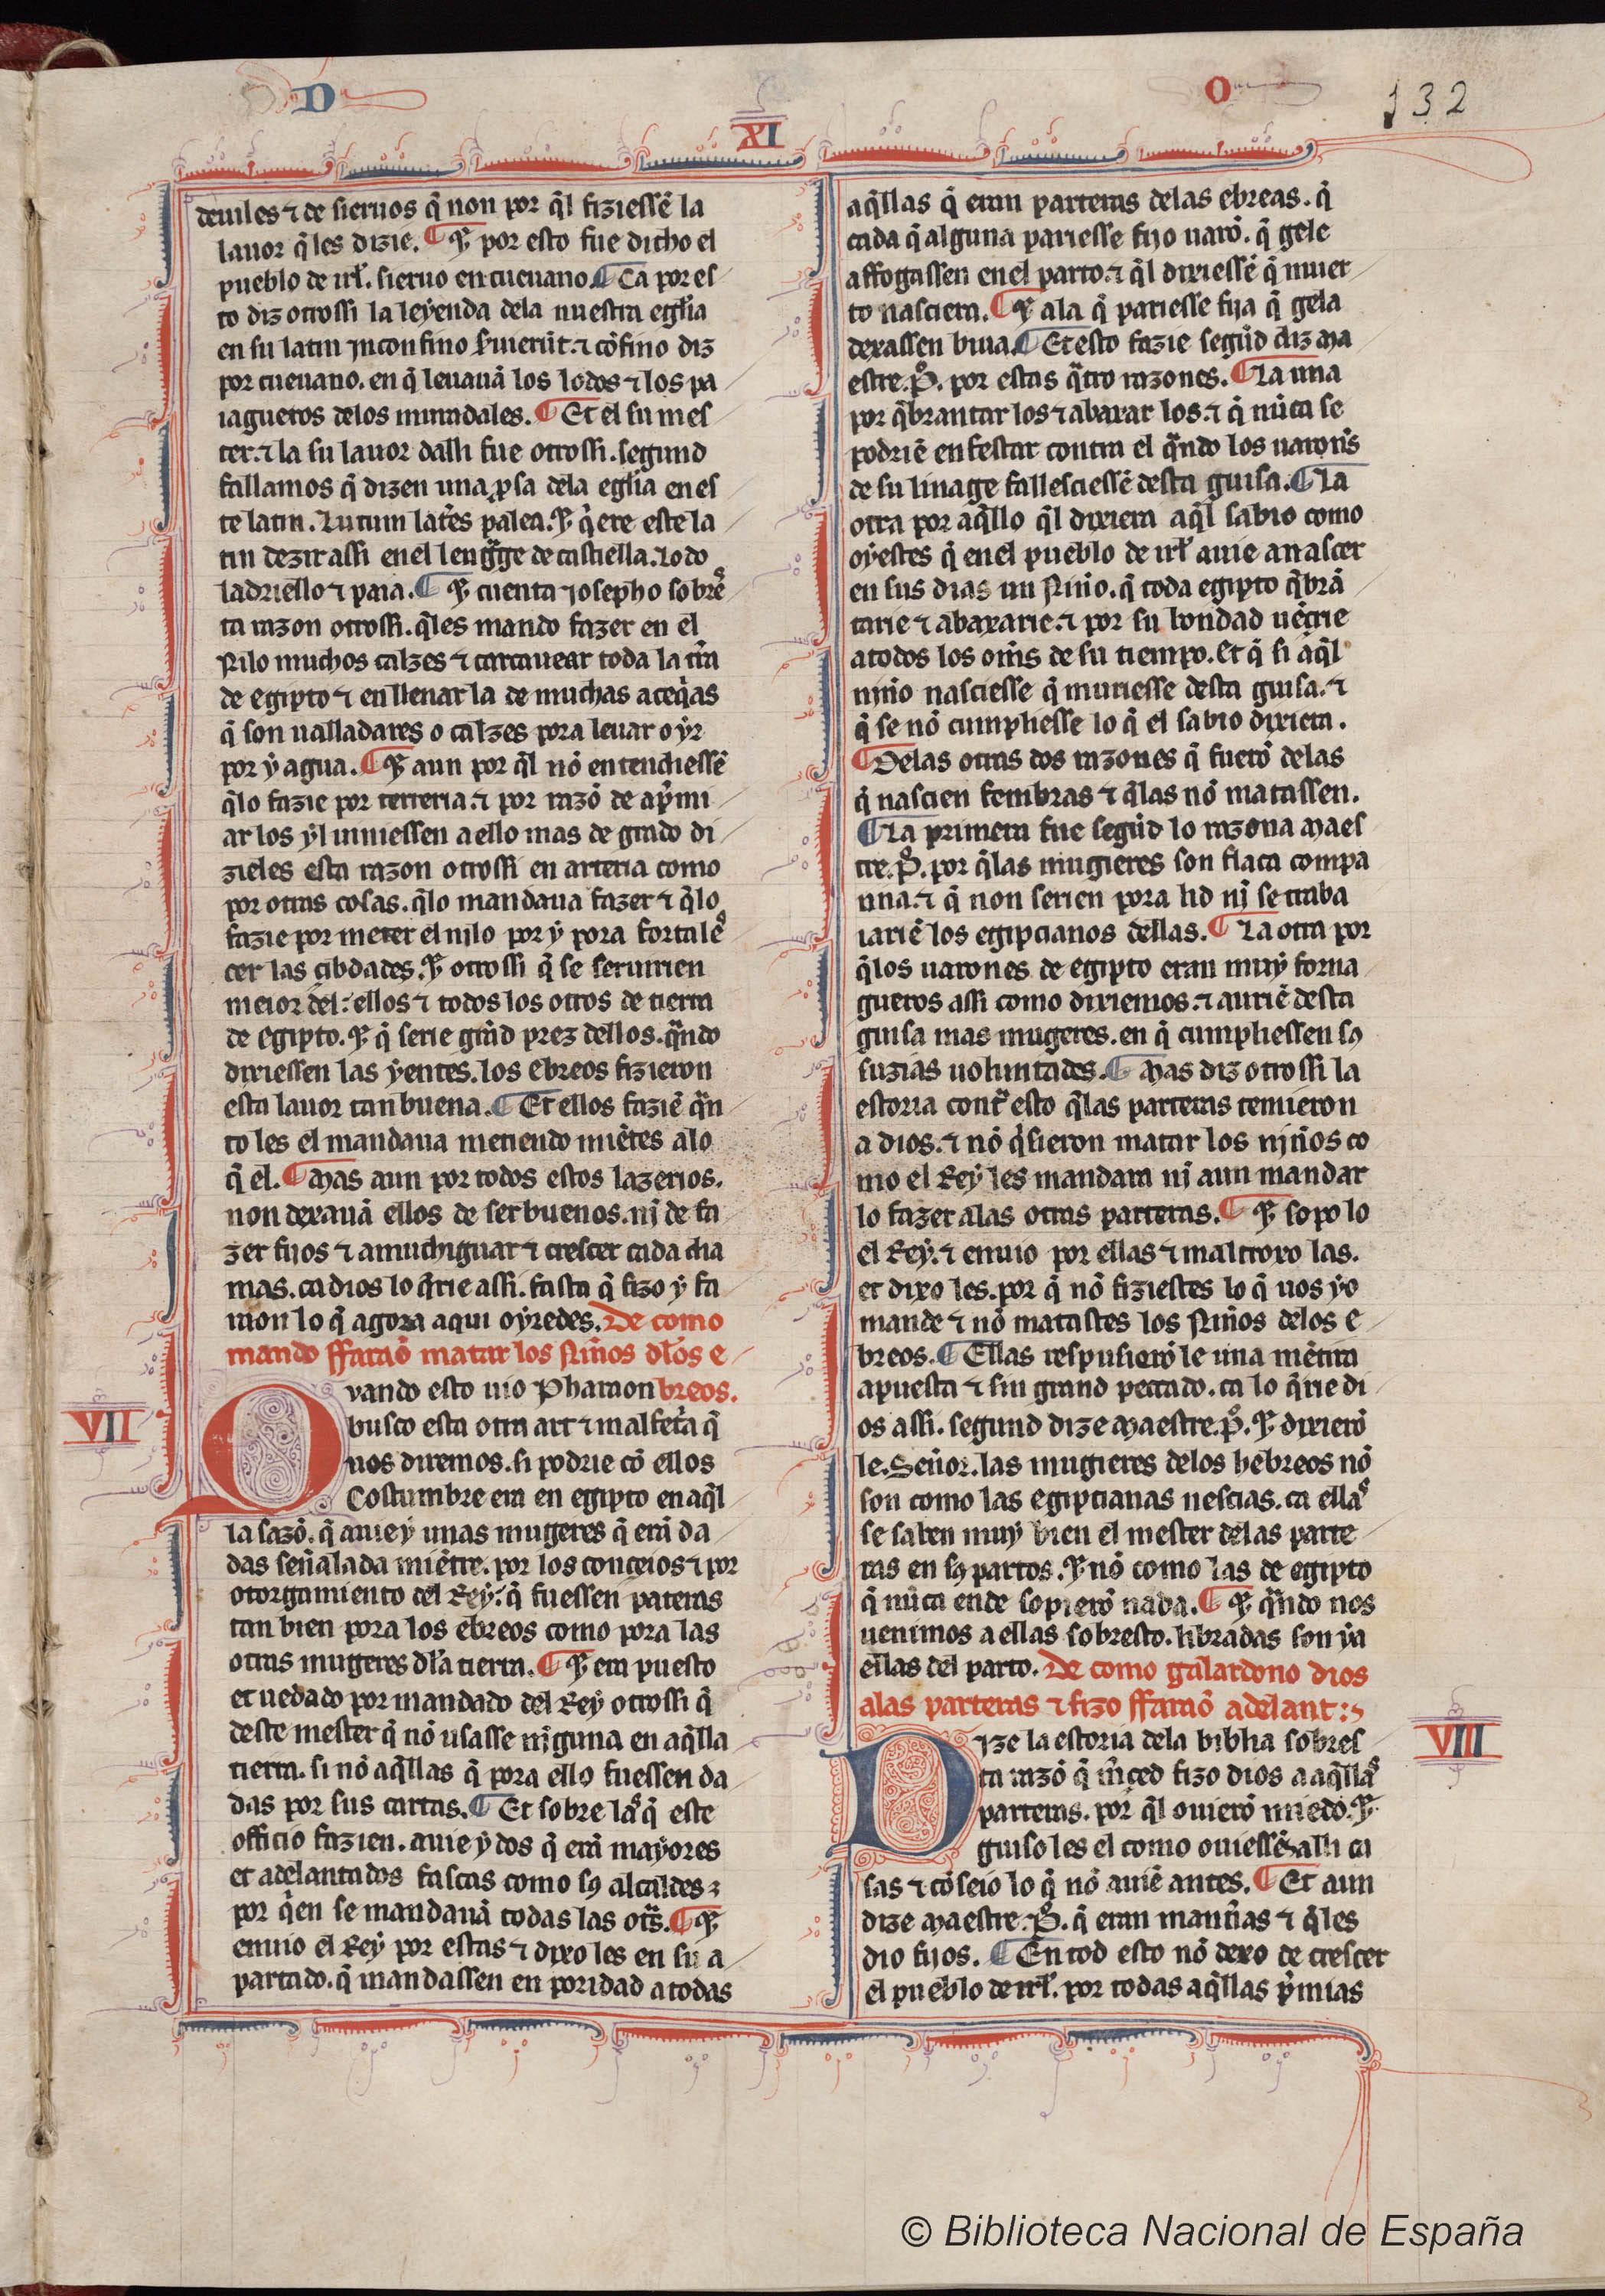 D
O
132
XI
deuiles ⁊ de sieruos q̃ non por q̃l fiziessẽ la
lauor q̃ les dizie. ¶ E por esto fue dicho el
pueblo de irl̃. sieruo en cueuano ¶ Ca por es
to diz otrossi la leyenda dela nuestra eglia
en su latin jn confino siruierũt. ⁊ cõfino diz
por cueuano. en q̃ leuauã los lodos ⁊ los pa
iagueros delos muradales. ¶ Et el su mes
ter. ⁊ la su lauor dalli fue otrossi. segund
fallamos q̃ dizen una psa dela eglia en es
te latin. Lutum lat̃es palea. E q̃ere este la
tin dezir assi en el lenguage de castiella. Lodo
ladriello ⁊ paia. ¶ E cuenta iosepho sobrẽs
ta razon otrossi. q̃les mando fazer en el
Nilo muchos calzes ⁊ carcauear toda la tr̃ra
de egipto ⁊ en llenar la de muchas aceq̃as
q̃ son ualladares o calzes pora leuar o yr
por ẏ agua. ¶ E aun por q̃l nõ entendiessẽ
q̃lo fazie por terreria. ⁊ por razõ de ap̃mi
ar los ẏl uiniessen a ello mas de grado di
zieles esta razon otrossi en arteria como
por otras cosas. q̃lo mandaua fazer ⁊ q̃lo
fazie por meter el nilo por ẏ pora fortales
cer las çibdades. E otrossi q̃ se seruirien
meior del: ellos ⁊ todos los otros de tierra
de egipto. E q̃ serie grãd prez dellos. q̃ndo
dixiessen las ẏentes. los Ebreos fizieron
esta lauor tan buena. ¶ Et ellos faziẽ q̃n
to les el mandaua metiendo miẽtes a lo
q̃ el. ¶ Mas aun por todos estos lazerios.
non dexauã ellos de ser buenos. nj̃ de fa
zer fijos ⁊ amuchiguar ⁊ crescer cada dia
mas. ca dios lo q̃rie assi. fasta q̃ fizo ẏ fa
raon lo q̃ agora aqui oyredes. De como
mando ffaraõ matar los Niños dl̃os e
breos.
VII
Quando esto uio Pharaon
busco esta otra art ⁊ malfetr̃a q̃
nos diremos. si podrie cõ ellos
Costumbre era en egipto en aq̃l
la sazõ. q̃ auie ẏ unas mugeres q̃ erã da
das señalada miẽtre. por los conceios ⁊ por
otorgamiento del Rey. q̃ fuessen pateras
tan bien pora los ebreos como pora las
otras mugeres dl̃a tierra. ¶ E era puesto
et uedado por mandado del Rey otrossi q̃
deste mester q̃ nõ usasse nj̃guna en aq̃lla
tierra. si nõ aq̃llas q̃ pora ello fuessen da
das por sus cartas. ¶ Et sobre las q̃ este
officio fazien. auie ẏ dos q̃ erã mayores
et adelantados fascas como sꝯ alcaldes ⁊
por q̃en se mandauã todas las otr̃s. ¶ E
enuio el Rey por estas ⁊ dixo les en su a
partado. q̃ mandassen en poridad a todas
aq̃llas q̃ eran parteras delas ebreas. q̃
cada q̃ alguna pariesse fijo uarõ. q̃ gele
affogassen en el parto. ⁊ q̃l dixiessẽ q̃ muer
to nasciera. ¶ E ala q̃ pariesse fija q̃ gela
dexassen biua. ¶ Et esto fazie segũd diz ma
estre. P̊. por estas q̃tro razones. ¶ La una
por q̃brantar los ⁊ abaxar los. ⁊ q̃ nũca se
podriẽ enfestar contra el q̃ndo los uarones
de su linage fallesciessẽ desta guisa. ¶ La
otra por aq̃llo q̃l dixiera aq̃l sabio como
oyestes q̃ en el pueblo de irl̃ auie a nascer
en sus dias un Niño. q̃ toda egipto q̃brã
tarie ⁊ abaxarie. ⁊ por su bondad uẽçrie
a todos los om̃s de su tiempo. Et q̃ si aq̃l
nino nasciesse q̃ muriesse desta guisa. ⁊
q̃ se nõ cumpliesse lo q̃ el sabio dixiera.
¶ Delas otras dos razones q̃ fuerõ delas
q̃ nascien fembras ⁊ q̃las nõ matassen.
¶ La primera fue segũd lo razona maes
tre. P̊. por q̃las mugieres son flaca compa
nna. ⁊ q̃ non serien pora lid nj̃ se traba
iariẽ los egipcianos dellas. ¶ La otra por
q̃los uarones de egipto eran muẏ forna
gueros assi como dixiemos. ⁊ auriẽ desta
guisa mas mugeres. en q̃ cumpliessen sꝯ
suzias uoluntades. ¶ Mas diz otrossi la
estoria contr̃ esto q̃las parteras temieron
a dios. ⁊ nõ q̃sieron matar los niños co
mo el Rey les mandara nj̃ aun mandar
lo fazer alas otras parteras. ¶ E sopo lo
el Rey. ⁊ enuio por ellas ⁊ maltroxo las.
et dixo les. por q̃ nõ fiziestes lo q̃ uos yo
mande ⁊ nõ matastes los Niños delos e
breos. ¶ Ellas respusierõle una mẽtira
apuesta ⁊ sin grand peccado. ca lo q̃rie di
os assi. segund dize maestre. P̊. E dixierõ
le. Señor. las mugieres delos hebreos nõ
son como las egipcianas nescias. ca ellas
se saben muẏ bien el mester delas parte
ras en sꝯ partos. E nõ como las de egipto
q̃ nũca ende sopierõ nada. ¶ E q̃ndo nos
uenimos a ellas sobresto. libradas son ya
ellas del parto. De como galardono dios
alas parteras ⁊ fizo ffaraõ adelant:
VIII
Dize la estoria dela biblia sobres
ta razõ q̃ m̃ced fizo dios a aq̃llas
parteras. por q̃l ouierõ miedo. E
guiso les el como ouiessẽ alli ca
sas ⁊ cõseio lo q̃ nõ auiẽ antes. ¶ Et aun
dize maestre. P̊. q̃ eran mañas ⁊ q̃les
dio fijos. ¶ En tod esto nõ dexo de crescer
el pueblo de irl̃. por todas aq̃llas p̃mias
© Biblioteca Nacional de España